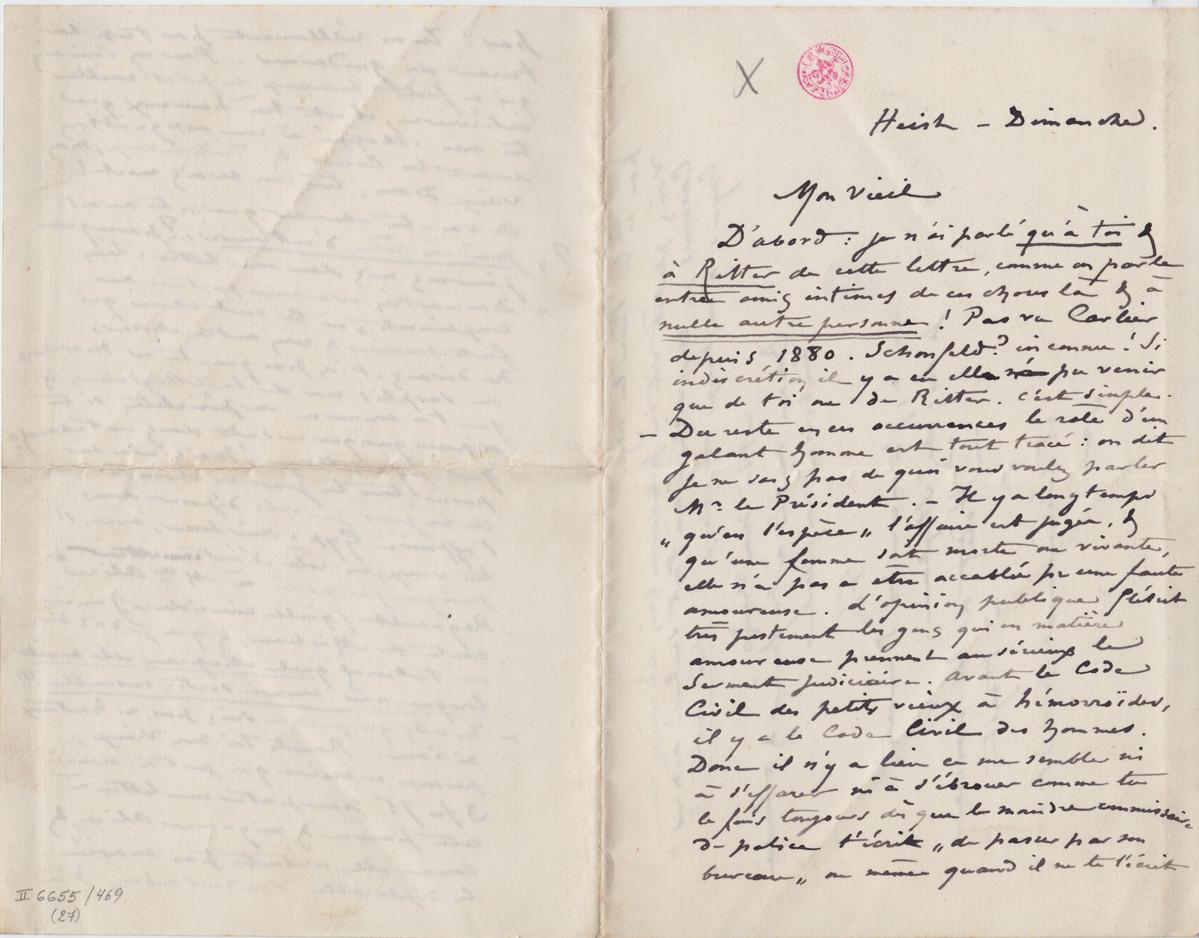 X
Heist – Dimanche.
Mon vieil
D'abord : je n'ai parlé qu'à toi &
à Ritter de cette lettre, comme on parle
entre amis intimes de ces choses là & à
nulle autre personne ! Pas vu Carlier
depuis 1880. Schonfeld? inconnu ! Si
indiscrétion il y a eu elle n'a pu venir
que de toi ou de Ritter. c'est simple.
– Du reste en ces occurrences le role d'un
galant homme est tout tracé : on dit
je ne sais pas de quoi vous voulez parler
Mr le Président. – Il y a longtemps
„ qu'en l'espèce „ l'affaire est jugée, &
qu'une femme soit morte ou vivante,
elle n'a pas a être accablée pr une faute
amoureuse. L'opinion publique flétrit
très justement les gens qui en matière
amoureuse prennent au sérieux le
Serment judiciaire. Avant le Code
Civil des petits vieux à hémorroïdes,
il y a le Code Civil des hommes.
Donc il n'y a lieu ce me semble ni
à s'effarer ni à s'ébrouer comme tu
le fais toujours dès que le moindre commissaire
de police t'écrit „ de passer par son
bureau „ ou même quand il ne te l'écrit
II 6655/469
(27)